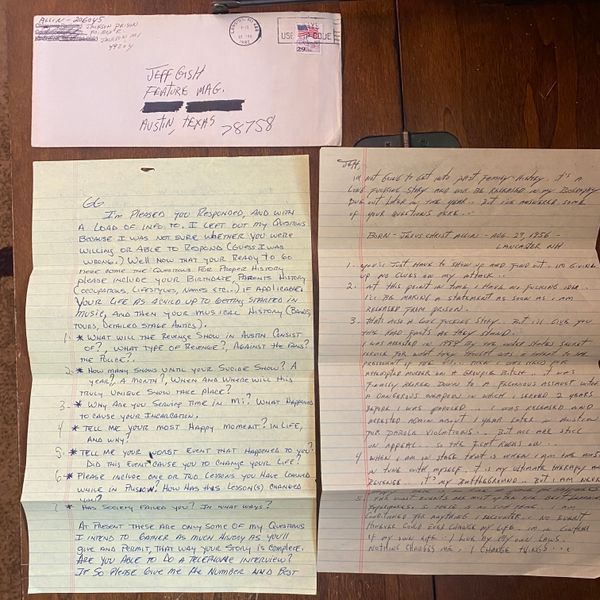 ALLIN - 206045
JACKSON PRISON
P.O. BOX E
JACKSON MI
49204
USE ZIP CODE
29
JEFF GISH
FEATURE MAG.
AUSTIN, TEXAS 78758
GG
I'M PLEASED YOU RESPONDED, AND WITH
A LOAD OF INFO. TO. I LEFT OUT MY QUESTIONS
BECAUSE I WAS NOT SURE WHETHER YOU WERE
WILLING OR ABLE TO RESPOND (GUESS I WAS
WRONG.) WELL NOW THAT YOUR READY TO GO
HERE SOME THE QUESTIONS FOR PROPER HISTORY
PLEASE INCLUDE YOUR BIRTHDATE, PARENTS HISTORY
(OCCUPATIONS, LIFESTYLES, NAMES ETC..) IF APPLICABLE,
YOUR LIFE AS A CHILD UP TO GETTING STARTED IN
MUSIC, AND THEN YOUR MUSICAL HISTORY (BANDS,
TOURS, DETAILED STAGE ANTICS).
1- * WHAT WILL THE REVENGE SHOW IN AUSTIN CONSIST
OF?, WHAT TYPE OF REVENGE?, AGAINST THE FANS?
THE POLICE?.
2- * HOW MANY SHOWS UNTIL YOUR SUICIDE SHOW? A
YEAR?, A MONTH?, WHEN AND WHERE WILL THIS
TRULY UNIQUE SHOW TAKE PLACE?
3- * WHY ARE YOU SERVING TIME IN MI? WHAT HAPPENED
TO CAUSE YOUR INCARCERATION.
4 * TELL ME YOUR MOST HAPPY MOMENT? IN LIFE,
AND WHY?
5- * TELL ME YOUR WORST EVENT THAT HAPPENED TO YOU?
DID THIS EVENT CAUSE YOU TO CHANGE YOUR LIFE?
6- * PLEASE INCLUDE ONE OR TWO LESSONS YOU HAVE LEARNED
WHILE IN PRISON. HOW HAS THIS LESSON(S) CHANGED
YOU?
7 * HAS SOCIETY FAILED YOU? IN WHAT WAYS?
AT PRESENT THESE ARE ONLY SOME OF MY QUESTIONS
I INTEND TO GATHER AS MUCH AS YOU'LL
GIVE AND PERMIT, THAT WAY YOUR STORY IS COMPLETE.
ARE YOU ABLE TO DO A TELEPHONE INTERVIEW?
IF SO PLEASE GIVE ME THE NUMBER AND BEST
JEFF,
IM NOT GOING TO GET INTO PAST FAMILY HISTORY. IT'S A
LONG FUCKING STORY AND WILL BE RELEASED IN MY
OUT LATER IN THE YEAR.. BUT I'VE ANSWERED SOME
OF YOUR QUESTIONS HERE..
BORN - JESUS CHRIST ALLIN - AUG. 29, 1956 -
LANCASTER NH
1. JUST HAVE TO SHOW UP AND FIND OUT. IM GIVING
UP NO CLUES ON MY ATTACK..
2. AT THIS POINT IN TIME I HAVE NO FUCKING IDEA..
I'LL BE MAKING A STATEMENT AS SOON AS I AM
RELEASED FROM PRISON.
3. THATS ALSO A LONG FUCKING STORY.. BUT ILL GIVE YOU
I WAS ARRESTED IN BY THE UNITED STATES SECRET
ATTEMPTED MURDER ON A GROUPIE BITCH.. IT WAS
FINALLY DOWN TO A FELONIOUS ASSAULT WITH
A DANGEROUS WEAPON IN WHICH I SERVED 2 YEARS
BEFORE I WAS PAROLED.. I WAS RELEASED AND
ARRESTED AGAIN ABOUT 1 YEAR LATER IN AUSTIN
FOR PAROLE VIOLATIONS.. BUT ALL ARE STILL
ON APPEAL.. SO THE FIGHT RAGES ON..
4 WHEN I AM ON STAGE THAT IS WHEN I AM THE MOST
IN TUNE WITH MYSELF. IT IS MY ULTIMATE THERAPY AND
REVENGE. IT'S MY BATTLEGROUND.. BUT I AM NEVER
5.
EVER CHANGE MY LIFE. IM IN CONTROL
OF MY OWN LIFE.. I LIVE BY MY OWN LAWS.
NOTHING CHANGES ME. I CHANGE THINGS...